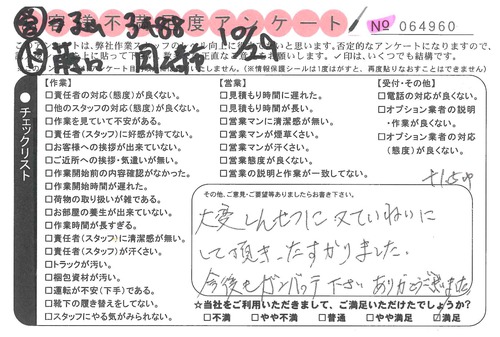 客様不満度アンケート
No 064960
3488 10/28
弊社作業スタッフのレベル向上に
思います。否定的なアンケートになりますので、
お願いします。✓印は、いくつでも結構です。
(※情報保護シールは1度はがすと、再度貼りなおすことはできません)
●チェックリスト
【作業】
□責任者の対応(態度)が良くない。
□他のスタッフの対応(態度)が良くない。
□作業を見ていて不安がある。
□責任者(スタッフ)に好感が持てない。
□お客様への挨拶が出来ていない。
□ご近所への挨拶・気遣いが無い。
□作業開始前の内容確認がなかった。
□作業開始時間が遅れた。
□荷物の取り扱いが雑である。
□お部屋の養生が出来ていない。
□作業時間が長すぎる。
□責任者(スタッフ)に清潔感が無い。
□責任者(スタッフ)が汗くさい。
□トラックが汚い。
□梱包資材が汚い。
□運転が不安(下手)である。
□靴下の履き替えをしてない。
□スタッフにやる気がみられない。
【営業】
□見積もり時間に遅れた。
□見積もり時間が長い。
□営業マンに清潔感が無い。
□営業マンが煙草くさい。
□営業マンが汗くさい。
□営業態度が良くない。
□営業の説明と作業が一致してない。
【受付・その他】
□電話の対応が良くない。
□オプション業者の説明・作業が良くない。
□オプション業者の対応(態度)が良くない。
その他、ご意見・ご要望等ありましたらお書き下さい。
大変しんせつに又ていねいに
して頂き、たすかりました。
今後もガンバッテ下さい ありがとうございました
☆当社をご利用いただきまして、ご満足いただけたでしょうか?
□不満 □やや不満 □普通 □やや満足 ☑満足